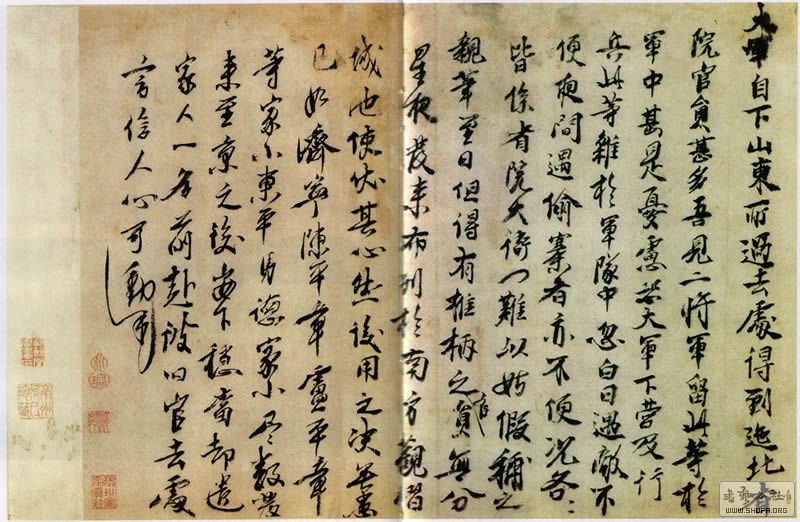 大軍自下山東所過去處得到迤北省
院官員甚多吾見二將軍留此等於
軍中甚是憂慮恐大軍下營及行
兵此等雜於軍隊中忽白日遇敵不
便夜間遇偷寨者亦不便況各〻
皆係省院大衙门難以姑假補之
親筆至日但得有椎柄之官員無分
星夜發来布列於南方觀習
城池使伏其心然後用之決無患
已如濟寧陳平章盧平章
等家小東平馬德家小尽數發
来至京之後安下穩當却遣
家人一名前赴彼旧官去處
言信人心可動
WWW.SHUFA.ORG